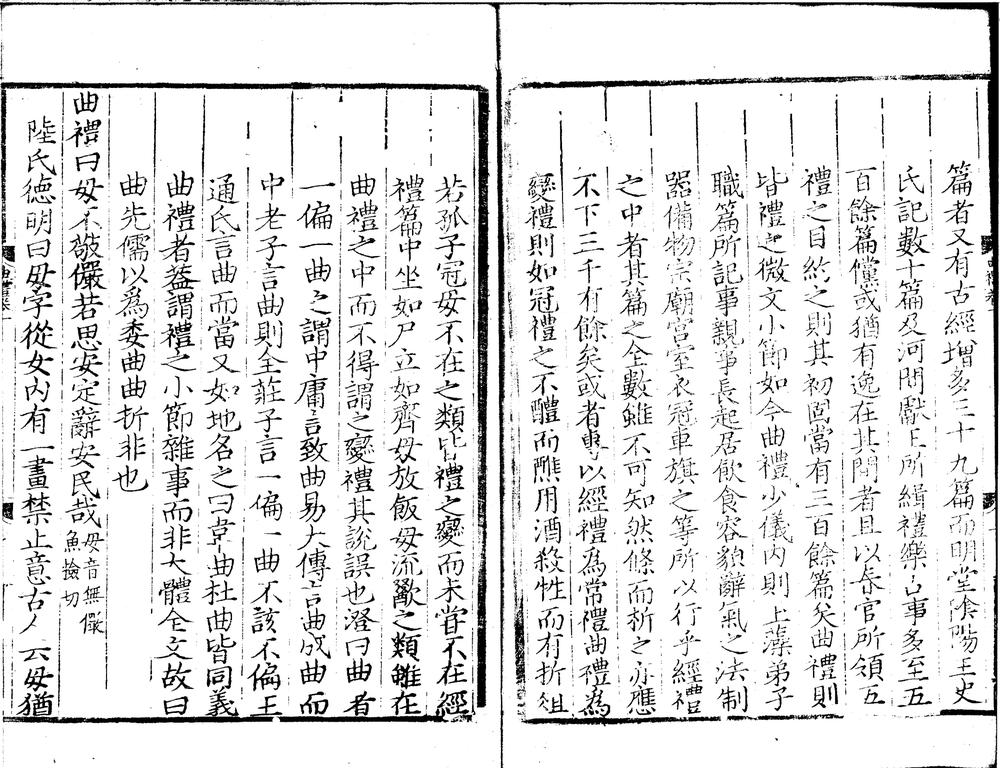 篇者又有古經增多三十九篇而明堂陰陽王史
氏記數十篇及河間獻王所緝禮樂古事多至五
百餘篇儻或猶有逸在其間者且以春官所領五
禮之目約之則其初固當有三百餘篇矣曲禮則
皆禮之微文小節如今曲禮少儀內則玉藻弟子
職篇所記事親事長起居飲食容貌辭氣之法制
器備物宗廟宮室衣冠車旗之等所以行乎經禮
之中者其篇之全數雖不可知然條而析之亦應
不下三千有餘矣或者專以經禮為常禮曲禮為
變禮則如冠禮之不醴而醮用酒殺牲而有折俎
若孤子冠母不在之類皆禮之變而未嘗不在經
禮篇中坐如尸立如齊毋放飯毋流歠之類雖在
曲禮之中而不得謂之變禮其說誤也澄曰曲者
一偏一曲之謂中庸言致曲易大傳言曲成曲而
中老子言曲則全莊子言一偏一曲不該不偏王
通氏言曲而當又如地名之曰韋曲杜曲皆同義
曲禮者蓋謂禮之小節雜事而非大體全文故曰
曲先儒以為委曲曲折非也
曲禮曰毋不敬儼若思安定辭安民哉毋音無儼魚檢切
陸氏德明曰毋字從女內有一畫禁止意古人云毋猶